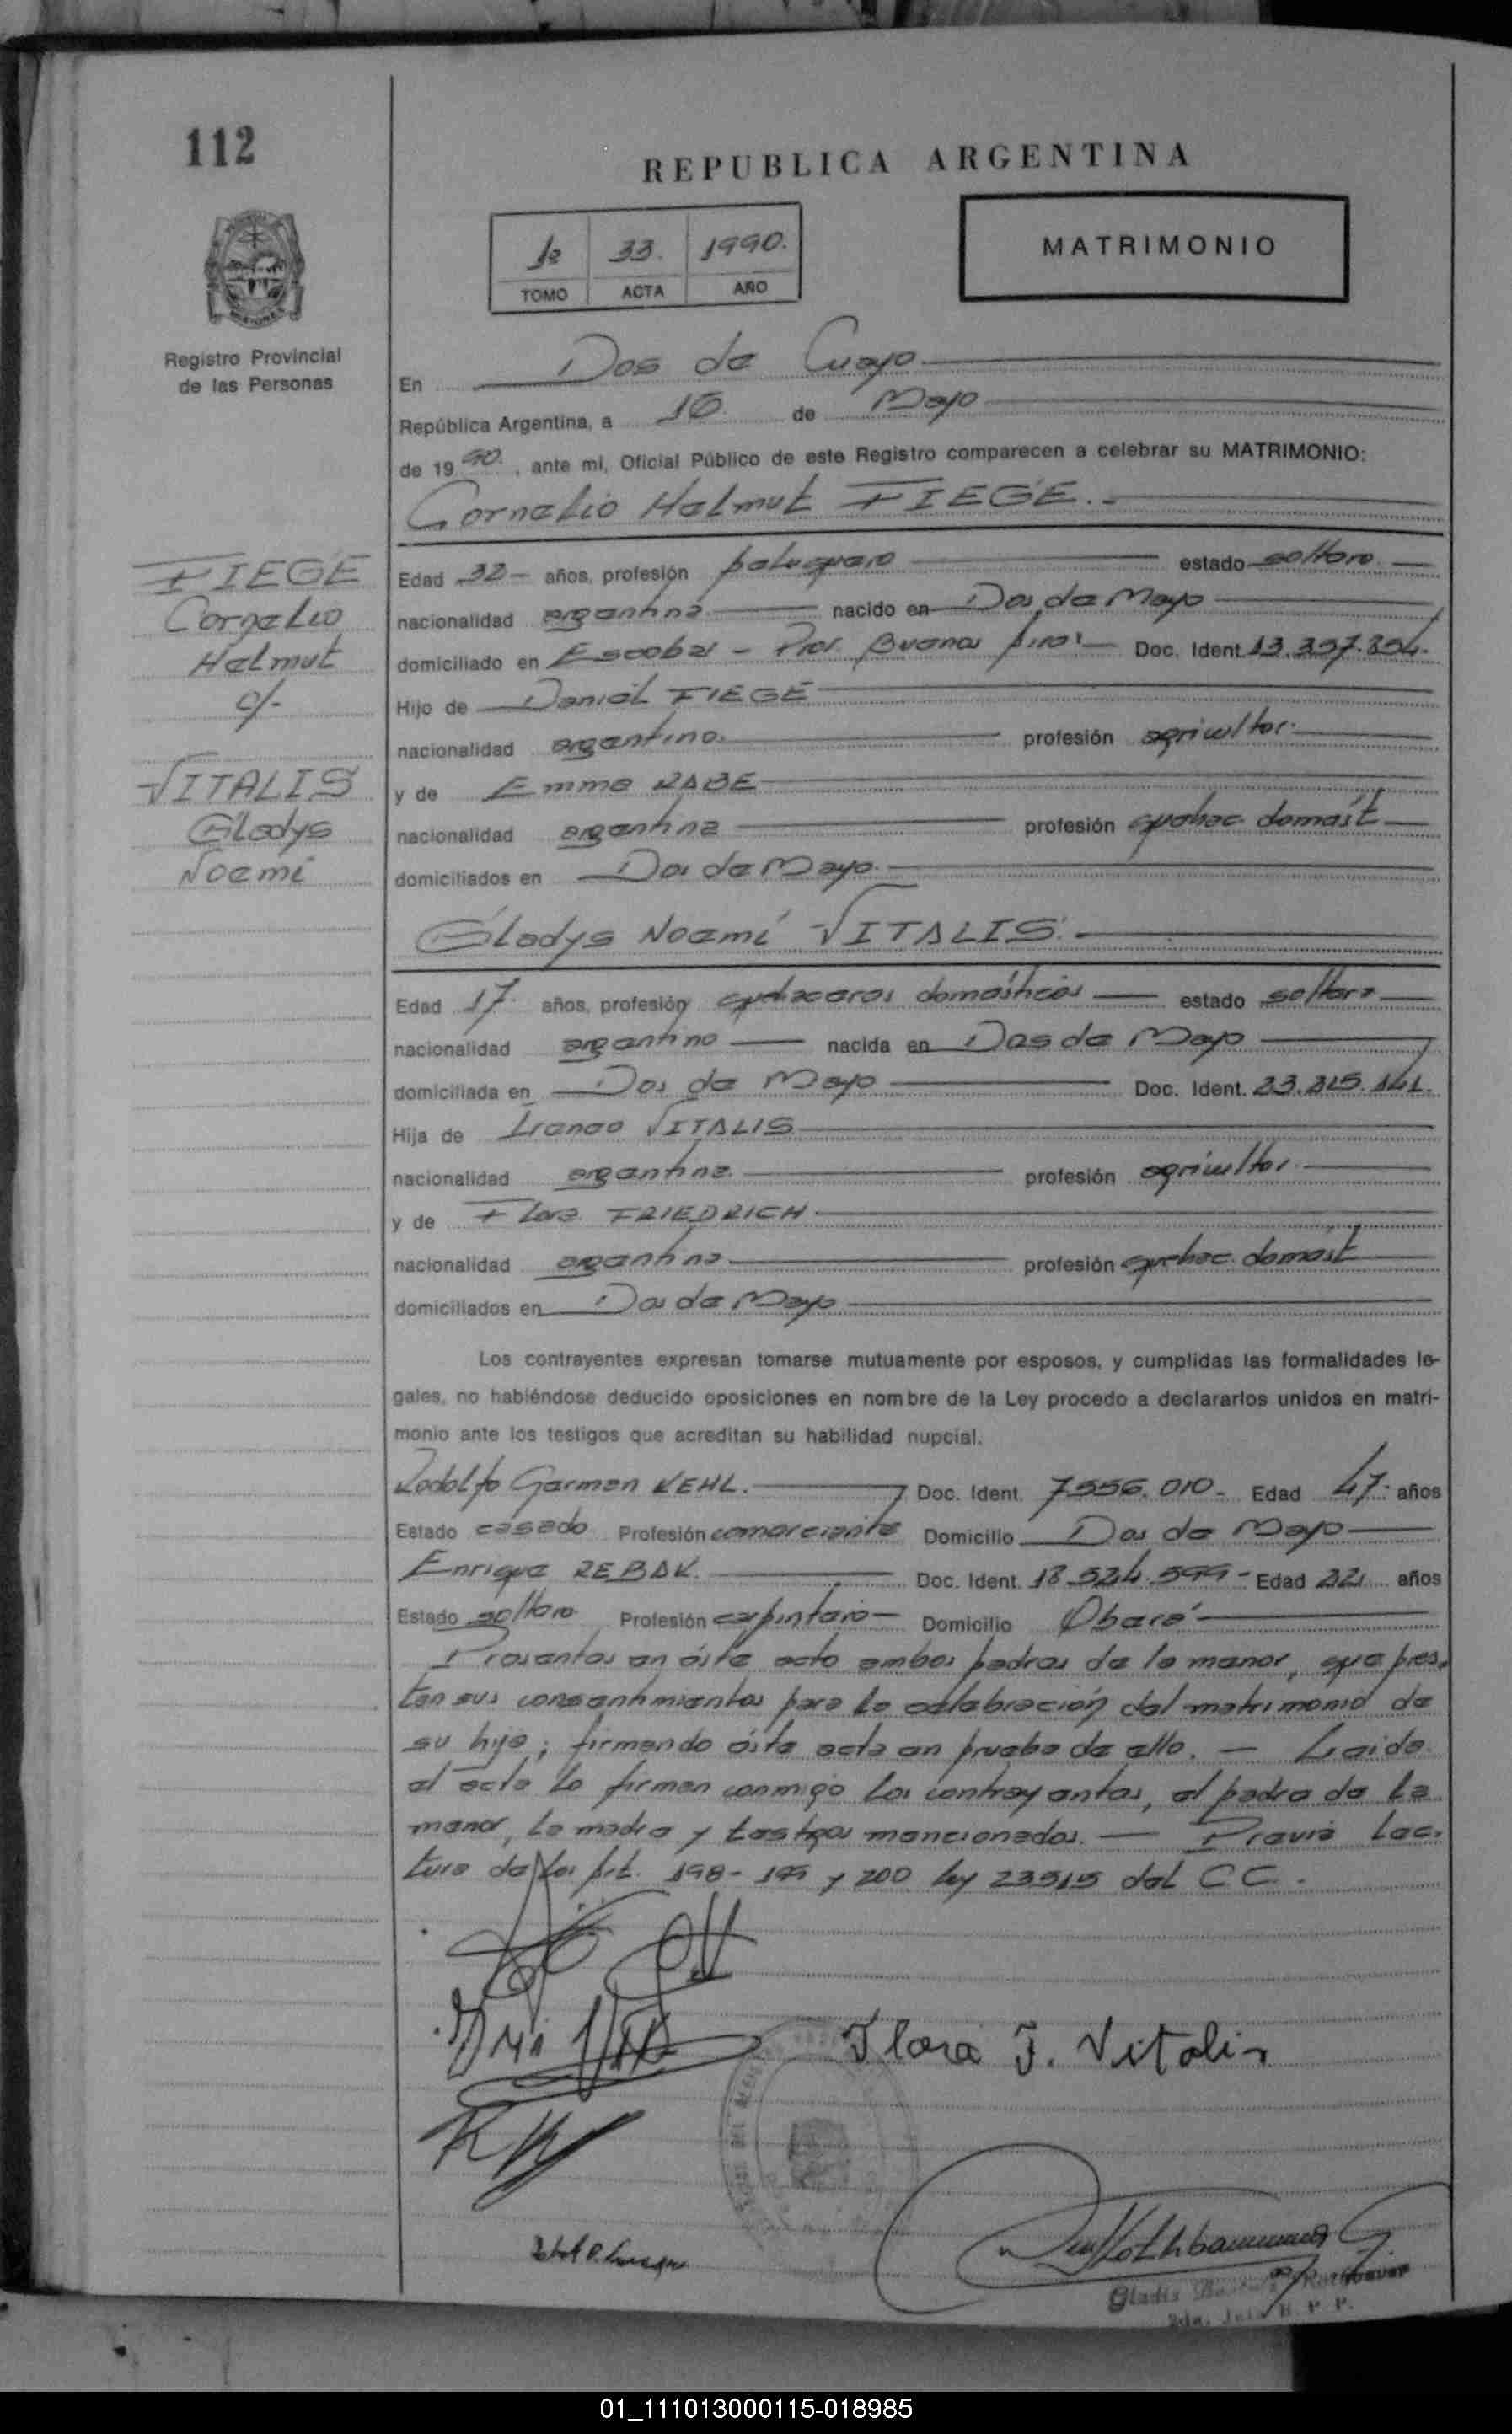 112
REPUBLICA ARGENTINA
1º 33. 1990.
TOMO ACTA AÑO
MATRIMONIO
Registro Provincial
de las Personas
En Dos de Cuayo
República Argentina, a 16 de Mayo
de 1990. , ante mi, Oficial Público de este Registro comparecen a celebrar su MATRIMONIO:
Cornelio Helmut FIEGE.-
FIEGE
Cornelio
Helmut
c/-
VITALIS
Gladys
Noemí
Edad 32 - años, profesión peluquero estado soltero
nacionalidad argentina nacido en Dos de Mayo
domiciliado en Escobar - Prov. Buenos Aires Doc. Ident. 13.397.854.
Hijo de Daniel FIEGE
nacionalidad argentino. profesión agricultor.
y de Emma RABE
nacionalidad argentina profesión quehac. domést
domiciliados en Dos de Mayo.
Gladys Noemí VITALIS.-
Edad 17. años, profesión quehaceres domésticos estado soltera
nacionalidad argentino nacida en Dos de Mayo
domiciliada en Dos de Mayo Doc. Ident. 23.215.141.
Hija de VITALIS
nacionalidad argentina. profesión agricultor.
y de Flora FRIEDRICH
nacionalidad argentina profesión quehac. domést
domiciliados en Dos de Mayo
Los contrayentes expresan tomarse mutuamente por esposos, y cumplidas las formalidades le-
gales, no habiéndose deducido oposiciones en nombre de la Ley procedo a declararlos unidos en matri-
monio ante los testigos que acreditan su habilidad nupcial.
Rodolfo German KEHL. Doc. Ident. 7.556.010- Edad 47. años
Estado casado Profesión comerciante Domicilio Dos de Mayo
Enrique REBAK. Doc. Ident. 18.524.599- Edad 22 años
Estado soltero Profesión carpintero Domicilio Oberá
Presentes en éste acto ambos padres de la menor, que pres-
tan sus consentimientos para la celebración del matrimonio de
su hija; firmando ésta acta en prueba de ello. — Leida
el acta la firman conmigo los contrayentes, el padre de la
menor, la madre y testigos mencionados. — Previa lec-
tura de los Art. 198- 199 y 200 ley 23515 del C.C.
Flora F. Vitalis
Gladis
01_111013000115-018985